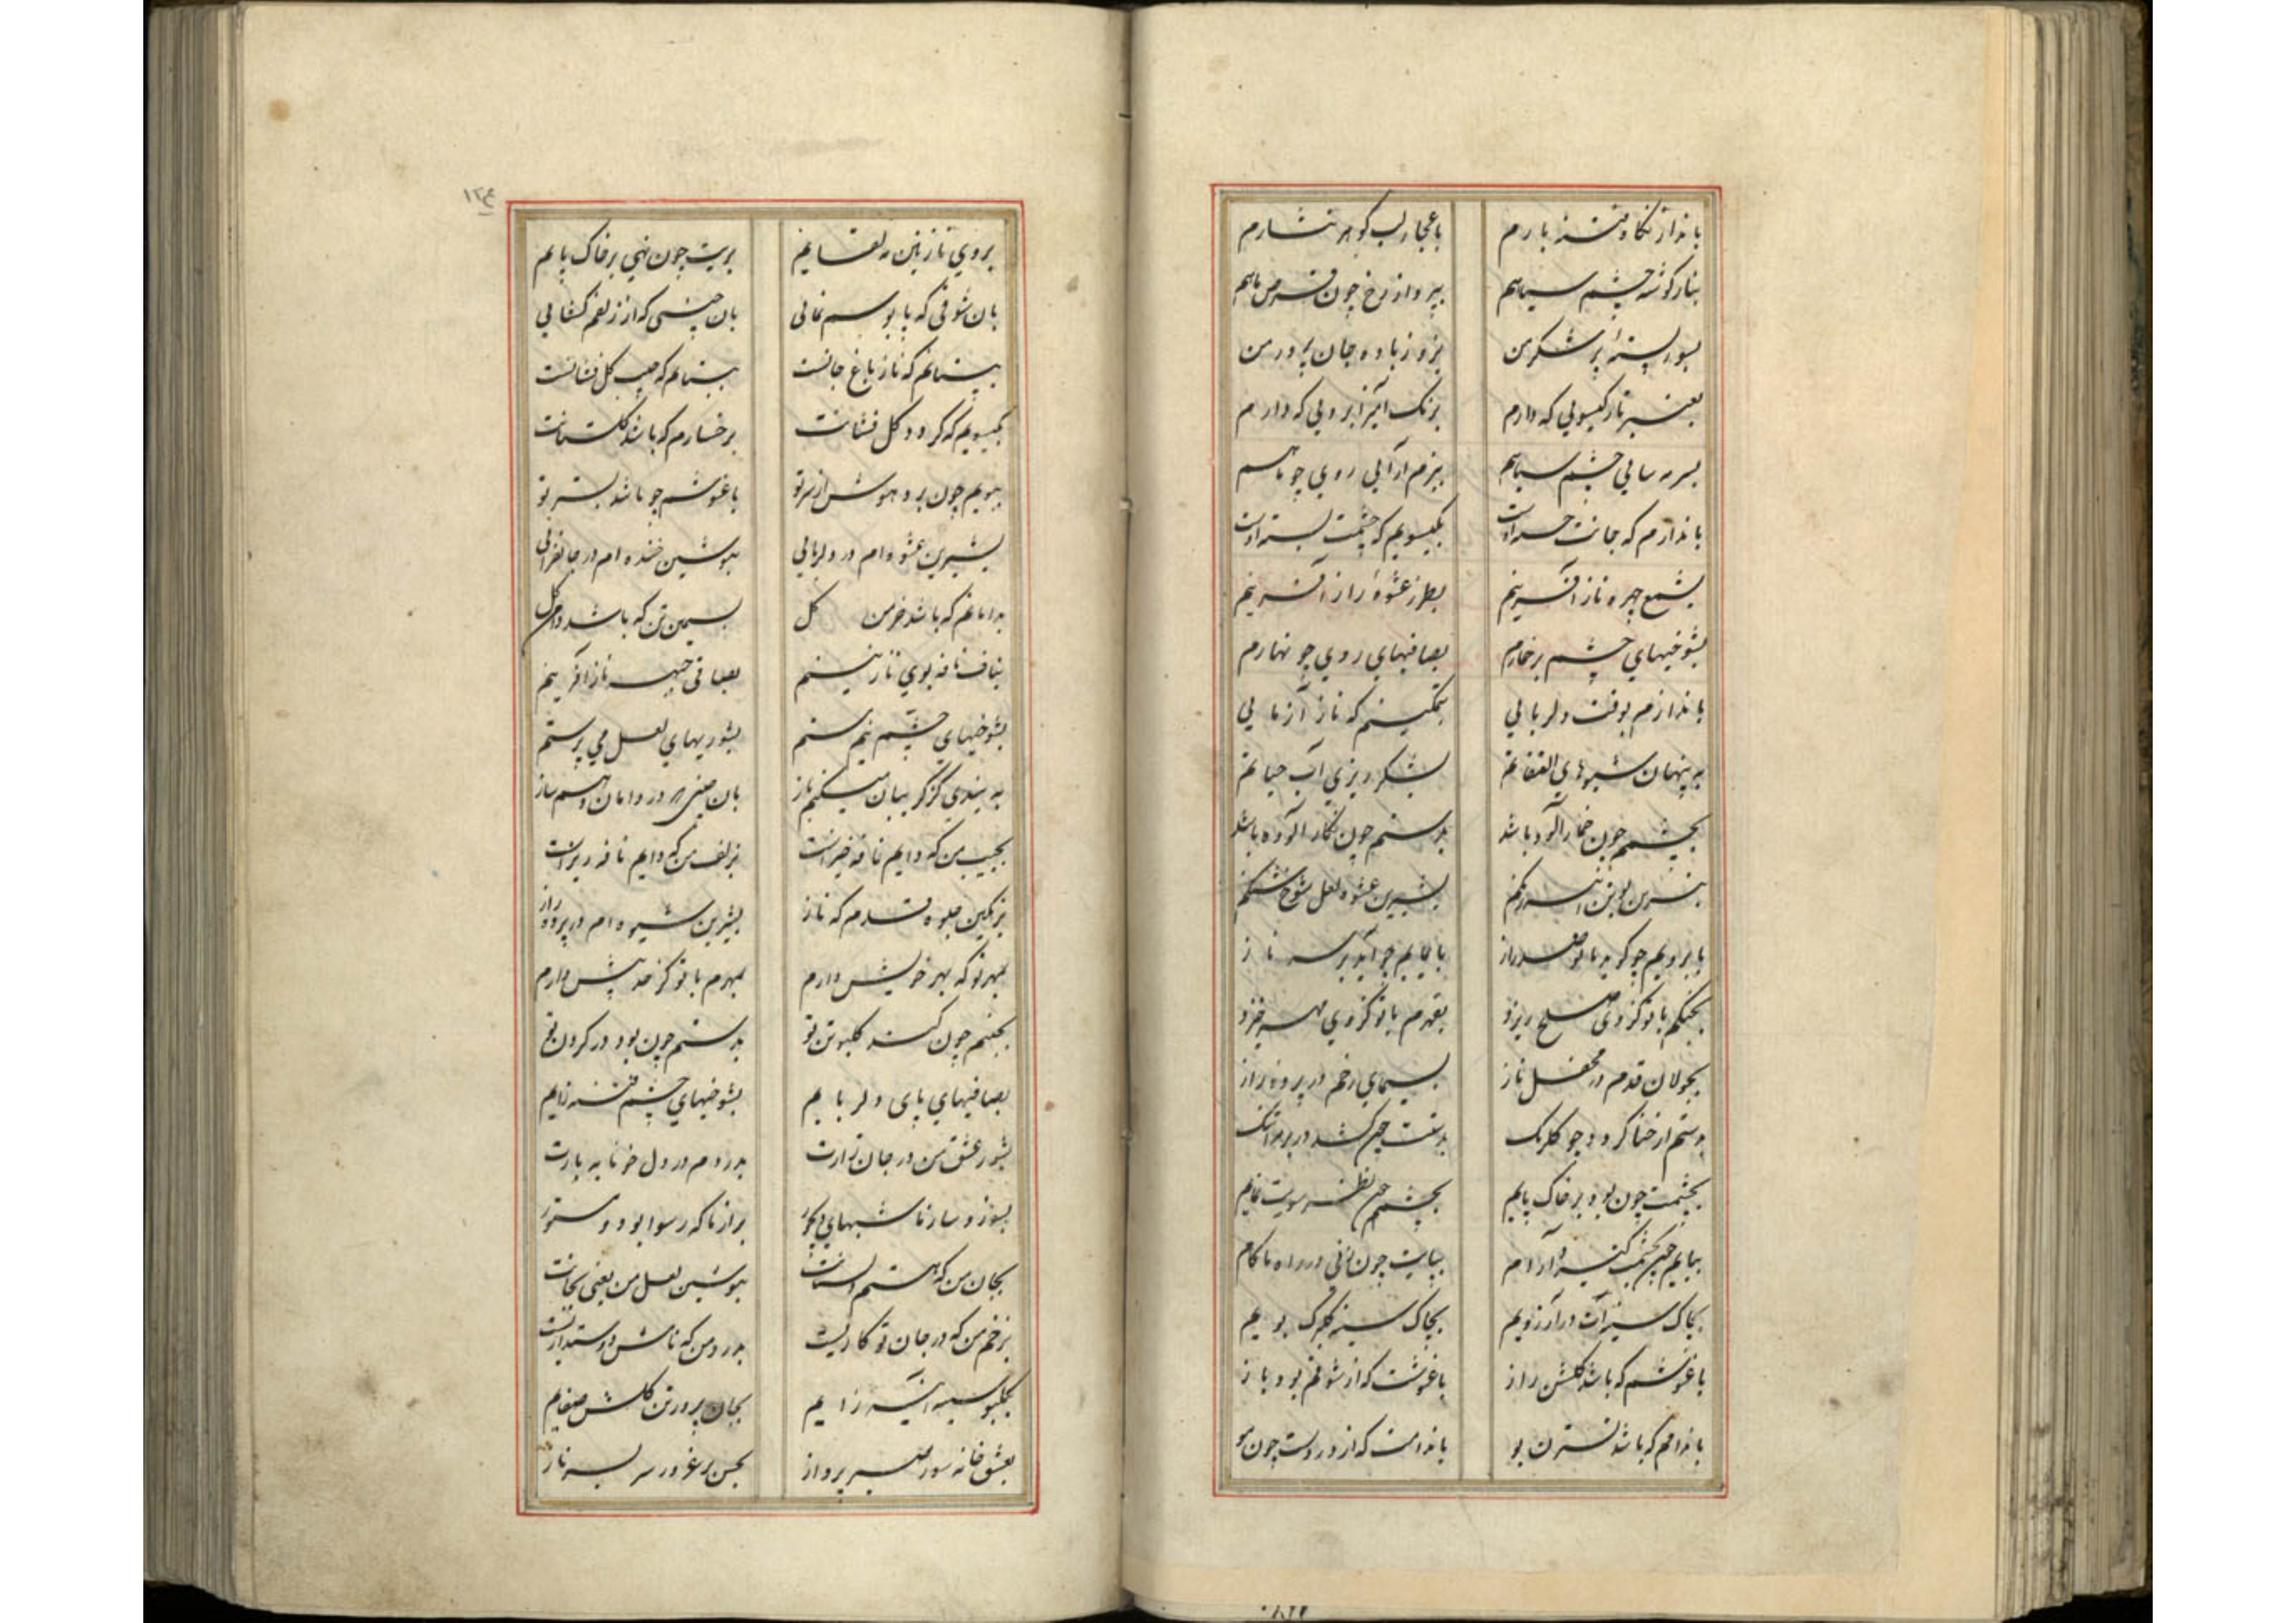 بانداز نگاه فتنه بارم باعجاز لب گوهر نثارم
بناز گوشه چشم سیاهم بپرواز رخ چون قرص ماهم
بشور پسته پر شکر من بزور باده جان پرور من
بعنبر بار گیسویی که دارم برنگ آمیز ابرویی که دارم
بسرمه سایی چشم سیاهم ببزم آرایی روی چو ماهم
باندازم که جانت خسته اوست بگیسویم که چشمت بسته اوست
بشمع چهره ناز آفرینم بطرز عشوه راز آفرینم
بشوخیهای چشم پر خمارم بصافیهای روی چو نهارم
باندازم بوقت دلربایی بتمکینم که ناز آزمایی
به پنهان شیوهای التفاتم بشکر ریزی آب حیاتم
بچشمم چون خمار آلود باشد بدستم چون نگار آلوده باشد
بشیرین عشوه لعل شوخ شنگم
بابرویم چو گوید با تو صد راز بایمایم چو آید بر سر ناز
بجنگم با تو کز وی صلح ریزد بقهرم با تو کز وی مهر خیزد
بجولان قدم در محفل ناز بسیمای رخم در پرده راز
بدستم از حنا گردد چو گلرنگ بدستت چون کشد در بر مرا تنگ
بچشمت چون بود بر خاک پایم بچشمم چون نظر سویت نمایم
بپایم چون بچشمت گیرد آرام بپایت چون نهی در راه ناکام
بچاک سینه ات در آرزویم بچاک سینه گلبرگ بویم
باغوشم که باشد گلشن راز باغوشت که از شوقم بود باز
باندامم که باشد نسترن بو باندامت که از دردست چون مو
۱۲۴
بروی نازنین مه لقایم بریت چون نهی بر خاک پایم
بان شوقی که پا بوسم نمائی بان چینی که از زلفم گشایی
ببستانم که ناز باغ جانست ببستانم که جیب گل فشانست
بگیسویم که گردد گل فشانت برخسارم که باشد گلستانت
ببویم چون برد هوش از سر تو باغوشم چو باشد بستر تو
بشیرین عشوه ام در دلربایی بنوشین خنده ام در جانفزایی
بدامانم که باشد خرمن گل بسیمین تن که باشد دامن گل
بناف نافه بوی نازنینم بصافی جبهه ناز آفرینم
بشوخیهای چشم نیم مستم بشوریهای لعل می پرستم
به بندی کز گریبان میکنم باز
بجیب من که دایم نافه خیز است بزلف من که دایم نافه ریز است
برنگین جلوه قدم که ناز بشیرین شیوه ام در پرده راز
بمهر تو که بهر خویش دارم بمهرم با تو کز حد پیش دارم
بجنبم چون کند گلبو تن تو بدستم چون بود در گردن تو
بصافیهای پای دلربایم بشوخیهای چشم فتنه زایم
بشور عشق من در جان زارت بدردم در دل خونابه بارت
بسوز و ساز ما شبهای دیجور براز ما که رسوا بود و مستور
بجان من که هستم دلستانت بنوشین لعل من یعنی بجانت
بزخم من که در جان تو کاریست بدرد من که نامش دوستداریست
بگلبو سینه آیینه زایم بجان پرور تن گلشن صفایم
بعشق خانه سوز صبر پرداز بحسن پر غرور سر بسر ناز